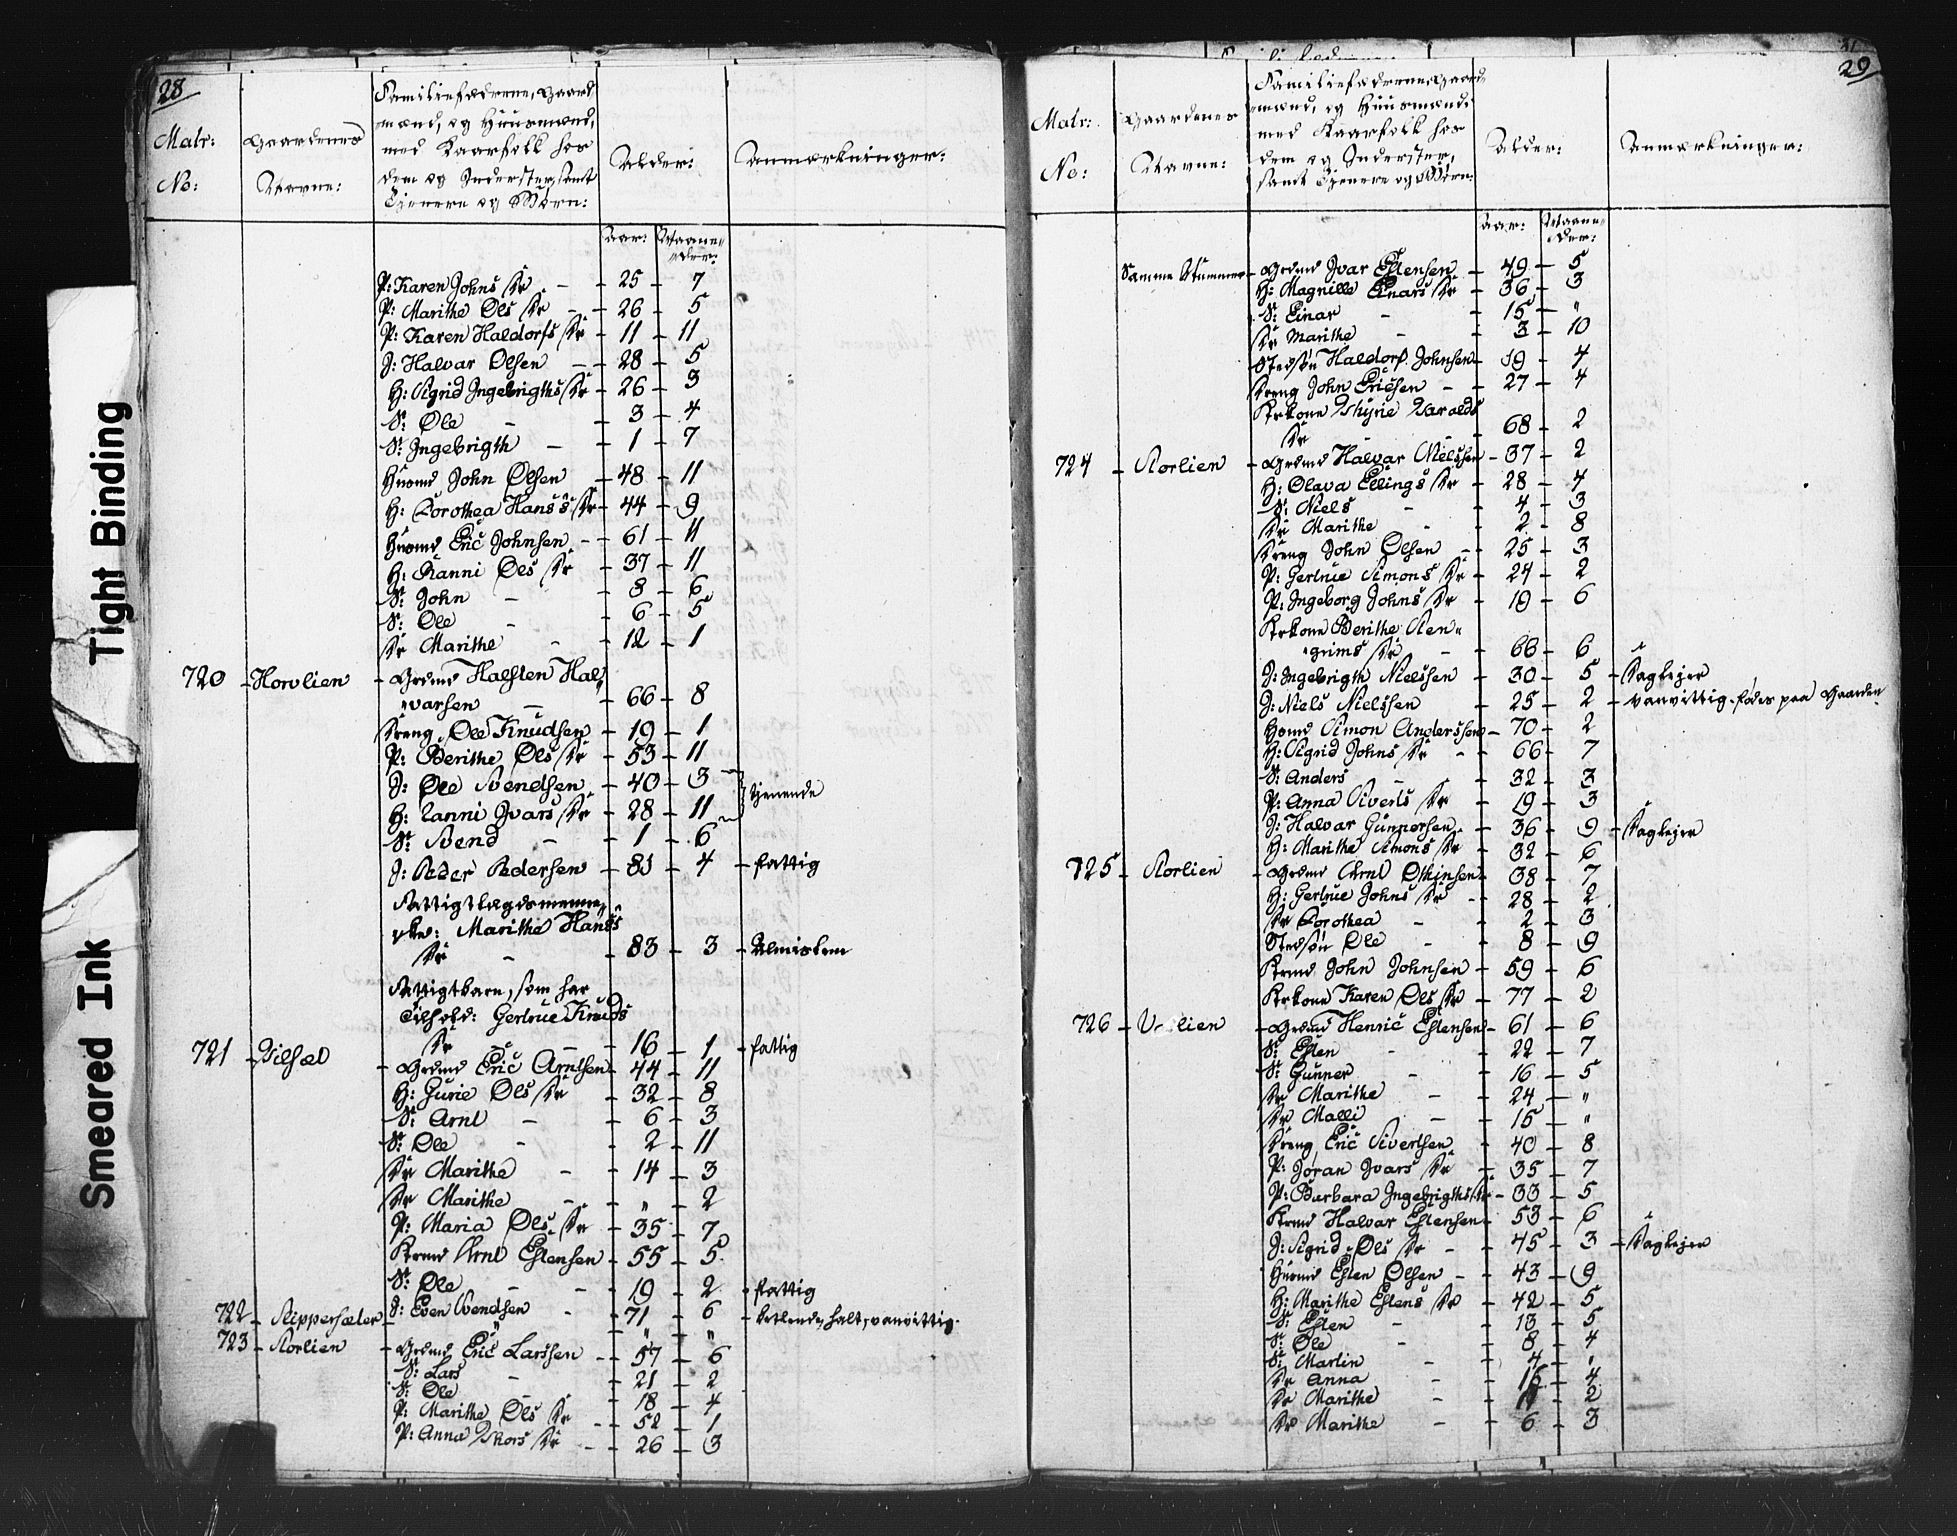 28
Matr:
No:
Gaardenes
Navne:
Familiefædrene, Gaard
mænd, og Huusmænd,
med Kaarfolk hos
dem og Inderster, samt
Tjenere og Børn:
Alder:
Anmærkninger:
Aar: Maane-
der:
P: Karen Johns Dr - 25 - 7
P: Marithe Ols Dr - 26 - 5
P: Karen Haldorss Dr - 11 - 11
I: Halvar Olsen - 28 - 5
H: Sigrid Ingebrigths Dr - 26 - 3
S: Ole - 3 - 4
S: Ingebrigth - 1 - 7
Huusmd John Olsen - 48 - 11
H: Dorothea Hans's Dr - 44 - 9
Huusmd Eric Johnsen - 61 - 11
H: Ranni Ols Dr - 37 - 11
S: John - 8 - 6
S: Ole - 6 - 5
Dr Marithe - 12 - 1
720 - Horvlien - Grdmd Halsten Hal-
varsen - 66 - 8
Dreng Ole Knudsen - 19 - 1
P: Berithe Ols Dr - 53 - 11
I: Ole Svendsen - 40 - 3
H: Ranni Ivars Dr - 28 - 11 } tjenende
S: Svend - 1 - 6
I: Peder Pedersen - 81 - 4 - fattig
Fattigtlægdsmenne-
sker: Marithe Hans's
Dr - 83 - 3 - Almislem
Fattigtbarn, som har
Tilhold: Gertrue Knuds
Dr - 16 - 1 - fattig
721 - Vilsæt - Grdmd Eric Arntsen - 44 - 11
H: Gurie Ols Dr - 32 - 8
S: Arnt - 6 - 3
S: Ole - 2 - 11
Dr Marithe - 14 - 3
Dr Marithe - " - 2
P: Maria Ols Dr - 35 - 7
Krmd Arnt Estensen - 55 - 5
S: Ole - 19 - 2 - fattig
722 - Klippersæter - I: Even Svendsen - 71 - 6 - betlende, halt, vanvittig.
" " "
723 - Storlien - Grdmd Eric Larssen - 57 - 6
S: Lars - 21 - 2
S: Ole - 18 - 4
P: Marithe Ols Dr - 52 - 1
P: Anna Thors Dr - 26 - 3
29
Matr:
No:
Gaardenes
Navne:
Familiefædrene, Gaard
mænd, og Huusmænd
med Kaarfolk hos
dem og Inderster,
samt Tjenere og Børn:
Alder:
Anmærkninger:
Aar: Maane-
der:
Samme Nummer - Grdmd Ivar Estensen - 49 - 5
H: Magnille Einars Dr - 36 - 3
S: Einar - 15 - "
Dr Marithe - 3 - 10
Stedsøn Haldorf Johnsen - 19 - 4
Dreng John Ericsen - 27 - 4
Krkone Thyrie Haralds
Dr - 68 - 2
724 - Storlien - Grdmd Halvar Nielssen - 37 - 2
H: Olava Ellings Dr - 28 - 4
S: Niels - 4 - 3
Dr Marithe - 2 - 8
Dreng John Olsen - 25 - 3
P: Gertrue Simons Dr - 24 - 2
P: Ingeborg Johns Dr - 19 - 6
Krkone Berithe Sten-
grims Dr - 66 - 6
I: Ingebrigth Nielssen - 30 - 5 - Daglejer
I: Niels Nielssen - 25 - 2 - vanvittig. fødes paa Gaarden.
Hsmd Simon Anderssen - 70 - 2
H: Sigrid Johns Dr - 66 - 7
S: Anders - 32 - 3
P: Anna Siverts Dr - 19 - 3
I: Halvar Gunnersen - 36 - 9 - Daglejer
H: Marithe Simons Dr - 32 - 6
725 - Storlien - Grdmd Arnt Othinsen - 38 - 7
H: Gertrue Johns Dr - 28 - 2
Dr Dorothea - 2 - 3
Stedsøn Ole - 8 - 9
Krmd John Johnsen - 59 - 6
Krkone Karen Ols Dr - 77 - 2
726 - - Grdmd Henric Estensen - 61 - 6
S: Esten - 22 - 7
S: Gunner - 16 - 5
Dr Marithe - 24 - "
Dr Malli - 15 - "
Dreng Eric Sivertsen - 40 - 8
P: Joran Ivars Dr - 35 - 7
P: Barbara Ingebrigths Dr - 33 - 5
Krmd Halvar Estensen - 53 - 6
I: Sigrid Ols Dr - 45 - 3 - Daglejer
Huusmd Esten Olsen - 43 - 9
H: Marithe Estens Dr - 42 - 5
S: Esten - 13 - 5
S: Ole - 8 - 4
S: Martin - 4 - "
Dr Anna - 16 - 4
Dr Marithe - 11 - 2
Dr Marithe - 6 - 3
Tight Binding
Smeared Ink